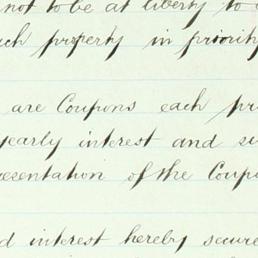 not to be at liberty to
such property in priority
are Coupons each
yearly interest and
resentation of the Coupo
d interest hereby secure